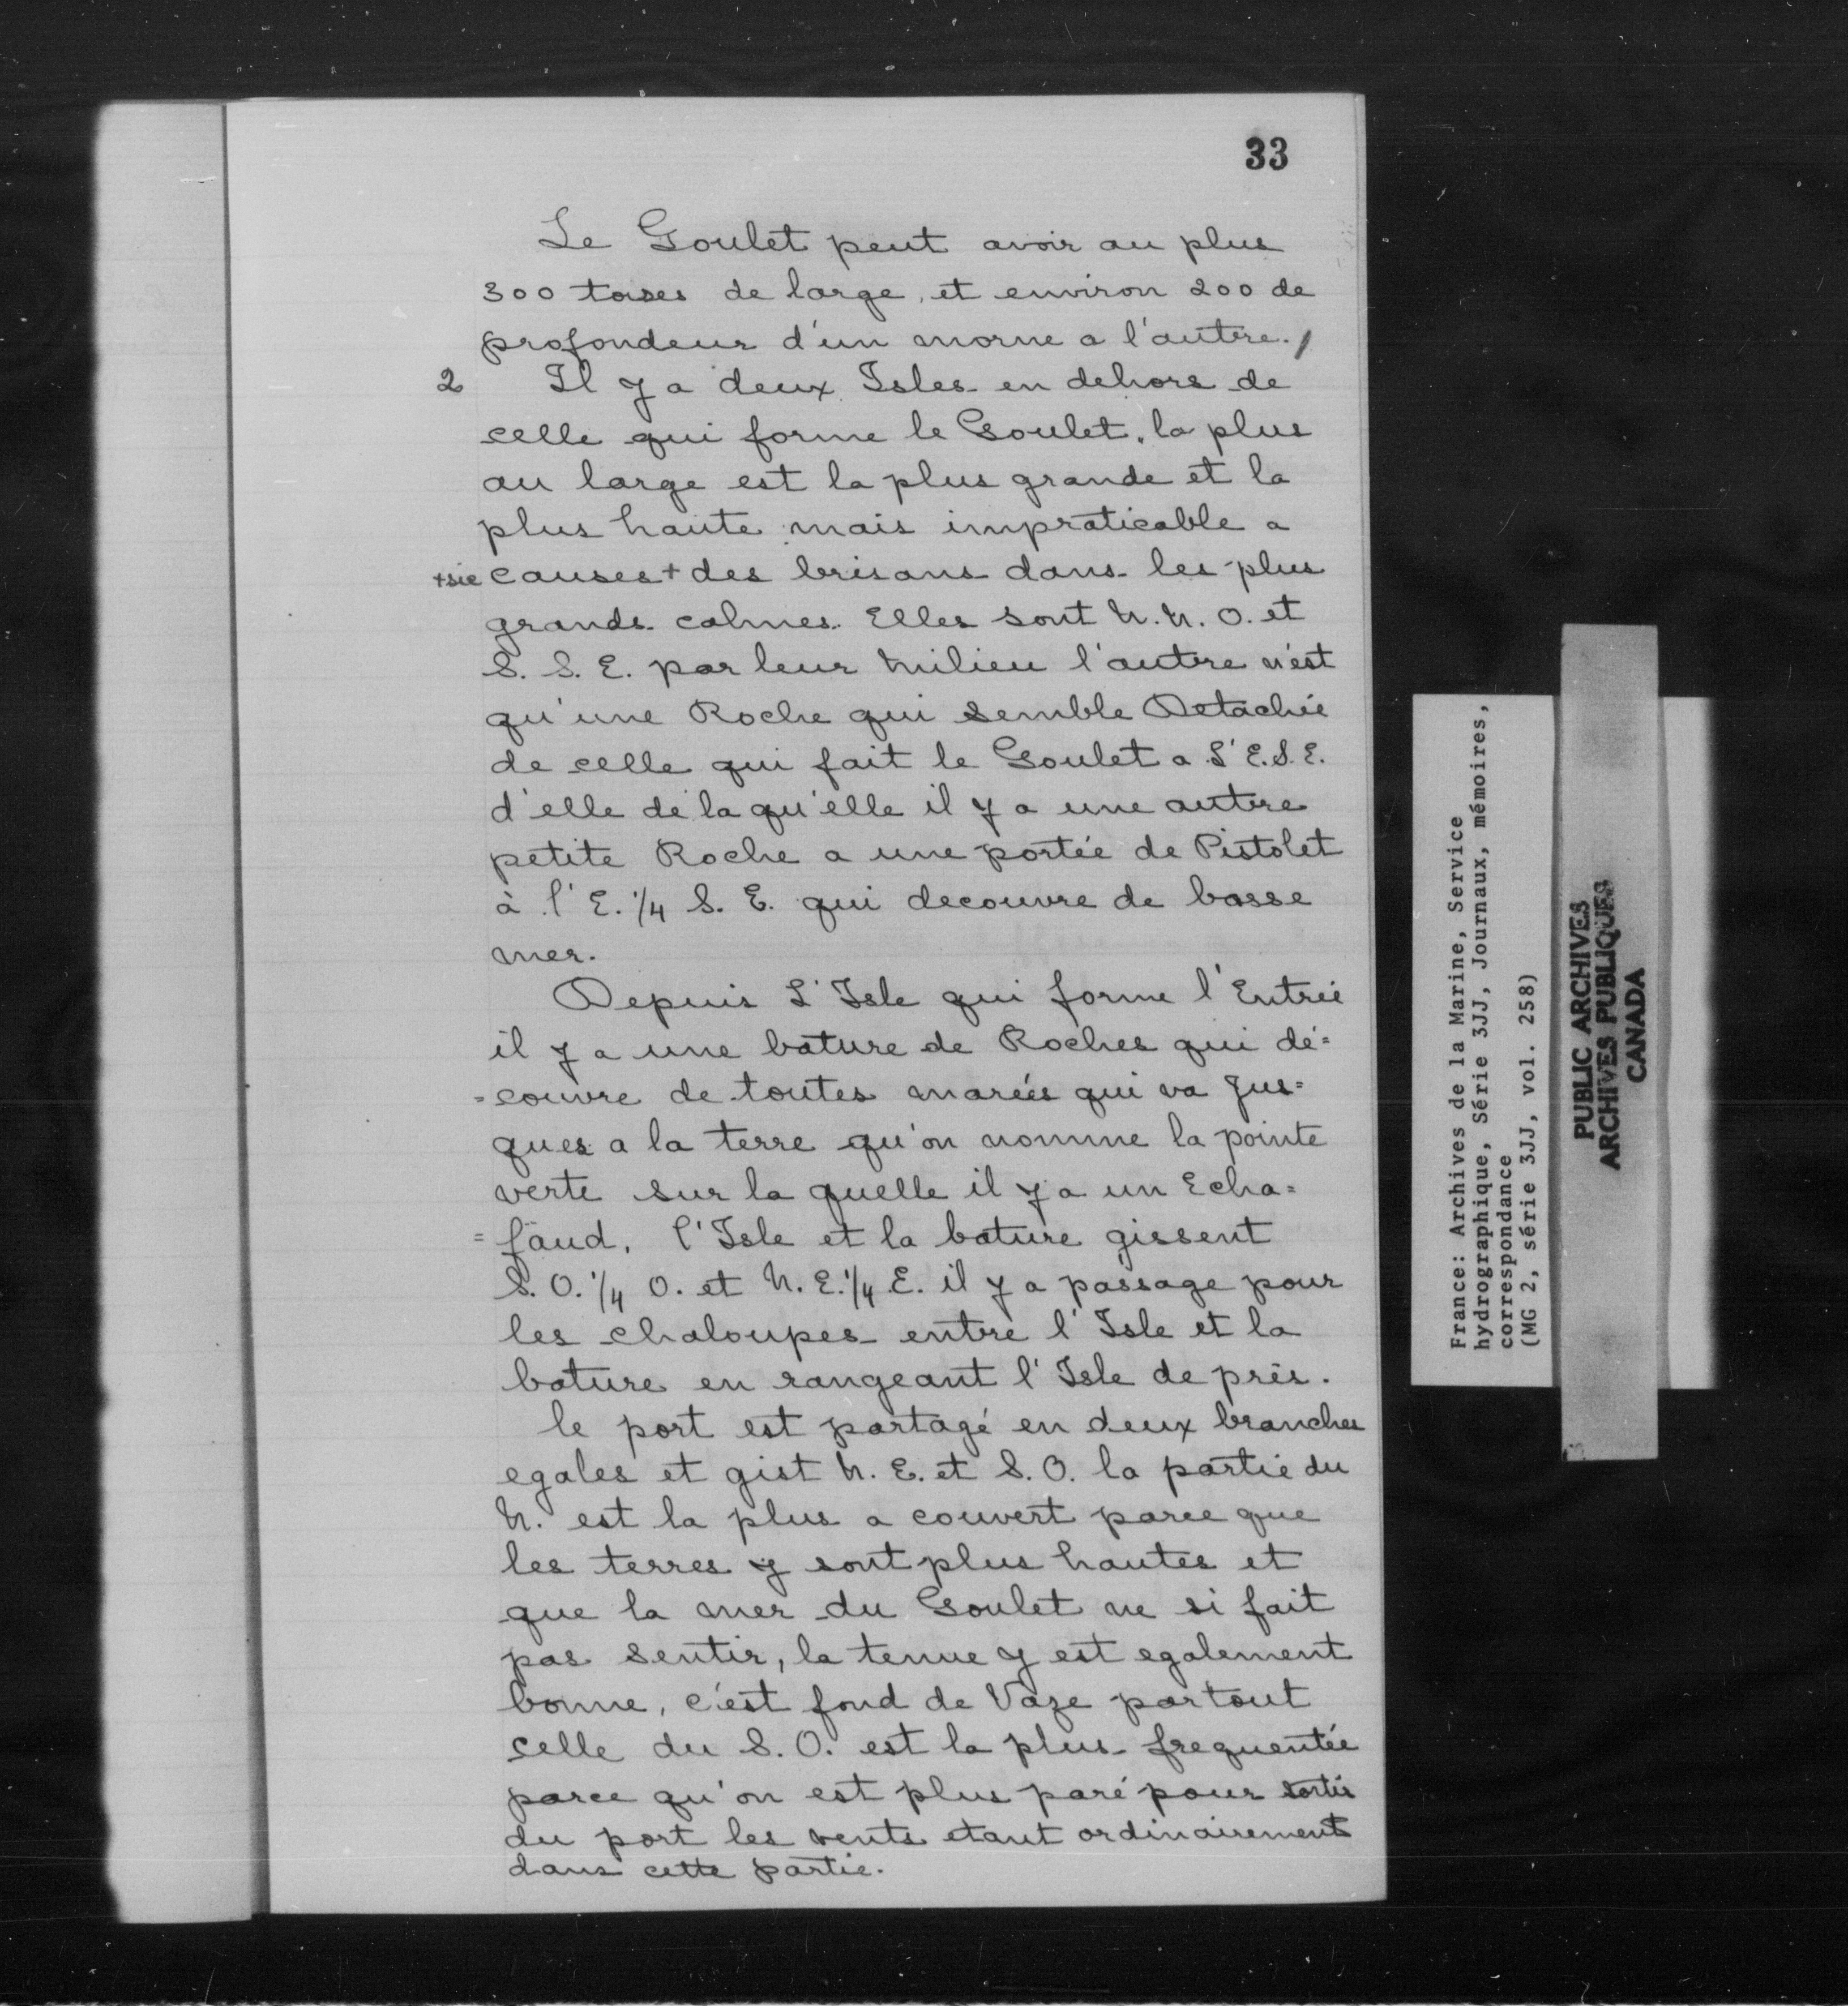 33
Le Goulet peut avoir au plus
300 toises de large, et environ 200 de
profondeur d'un morne a l'autre./
2 Il y a deux Isles en dehors de
celle qui forme le Goulet, la plus
au large est la plus grande et la
plus haute mais impraticable a
+sic causes+ des brisans dans les plus
grands calmes. Elles sont N.N.O. et
S.S.E. par leur Milieu l'autre n'est
qu'une Roche qui semble Detachée
de celle qui fait le Goulet a L'E.S.E.
d'elle de la qu'elle il y a une autre
petite Roche a une portée de Pistolet
à l'E.1/4 S.E. qui decouvre de basse
mer.
Depuis L'Isle qui forme l'Entrée
il y a une bature de Roches qui dé=
=couvre de toutes marées qui va Jus=
ques a la terre qu'on nomme la pointe
verte sur la quelle il y a un Echa=
=faud, l'Isle et la bature gissent
S.O.1/4 O. et N.E.1/4 E. il y a passage pour
les chaloupes entre l'Isle et la
bature en rangeant l'Isle de près.
le port est partagé en deux branches
egales et gist N.E. et S.O. la partie du
N. est la plus a couvert parce que
les terres y sont plus hautes et
que la mer du Goulet ne si fait
pas sentir, la tenue y est egalement
bonne, c'est fond de Vaze partout
celle du S.O. est la plus frequentée
parce qu'on est plus paré pour sortir
du port les vents etant ordinairement
dans cette partie.
France: Archives de la Marine, Service
hydrographique, Série 3JJ, Journaux, mémoires,
correspondance
(MG 2, série 3JJ, vol. 258)
PUBLIC ARCHIVES
ARCHIVES PUBLIQUES
CANADA